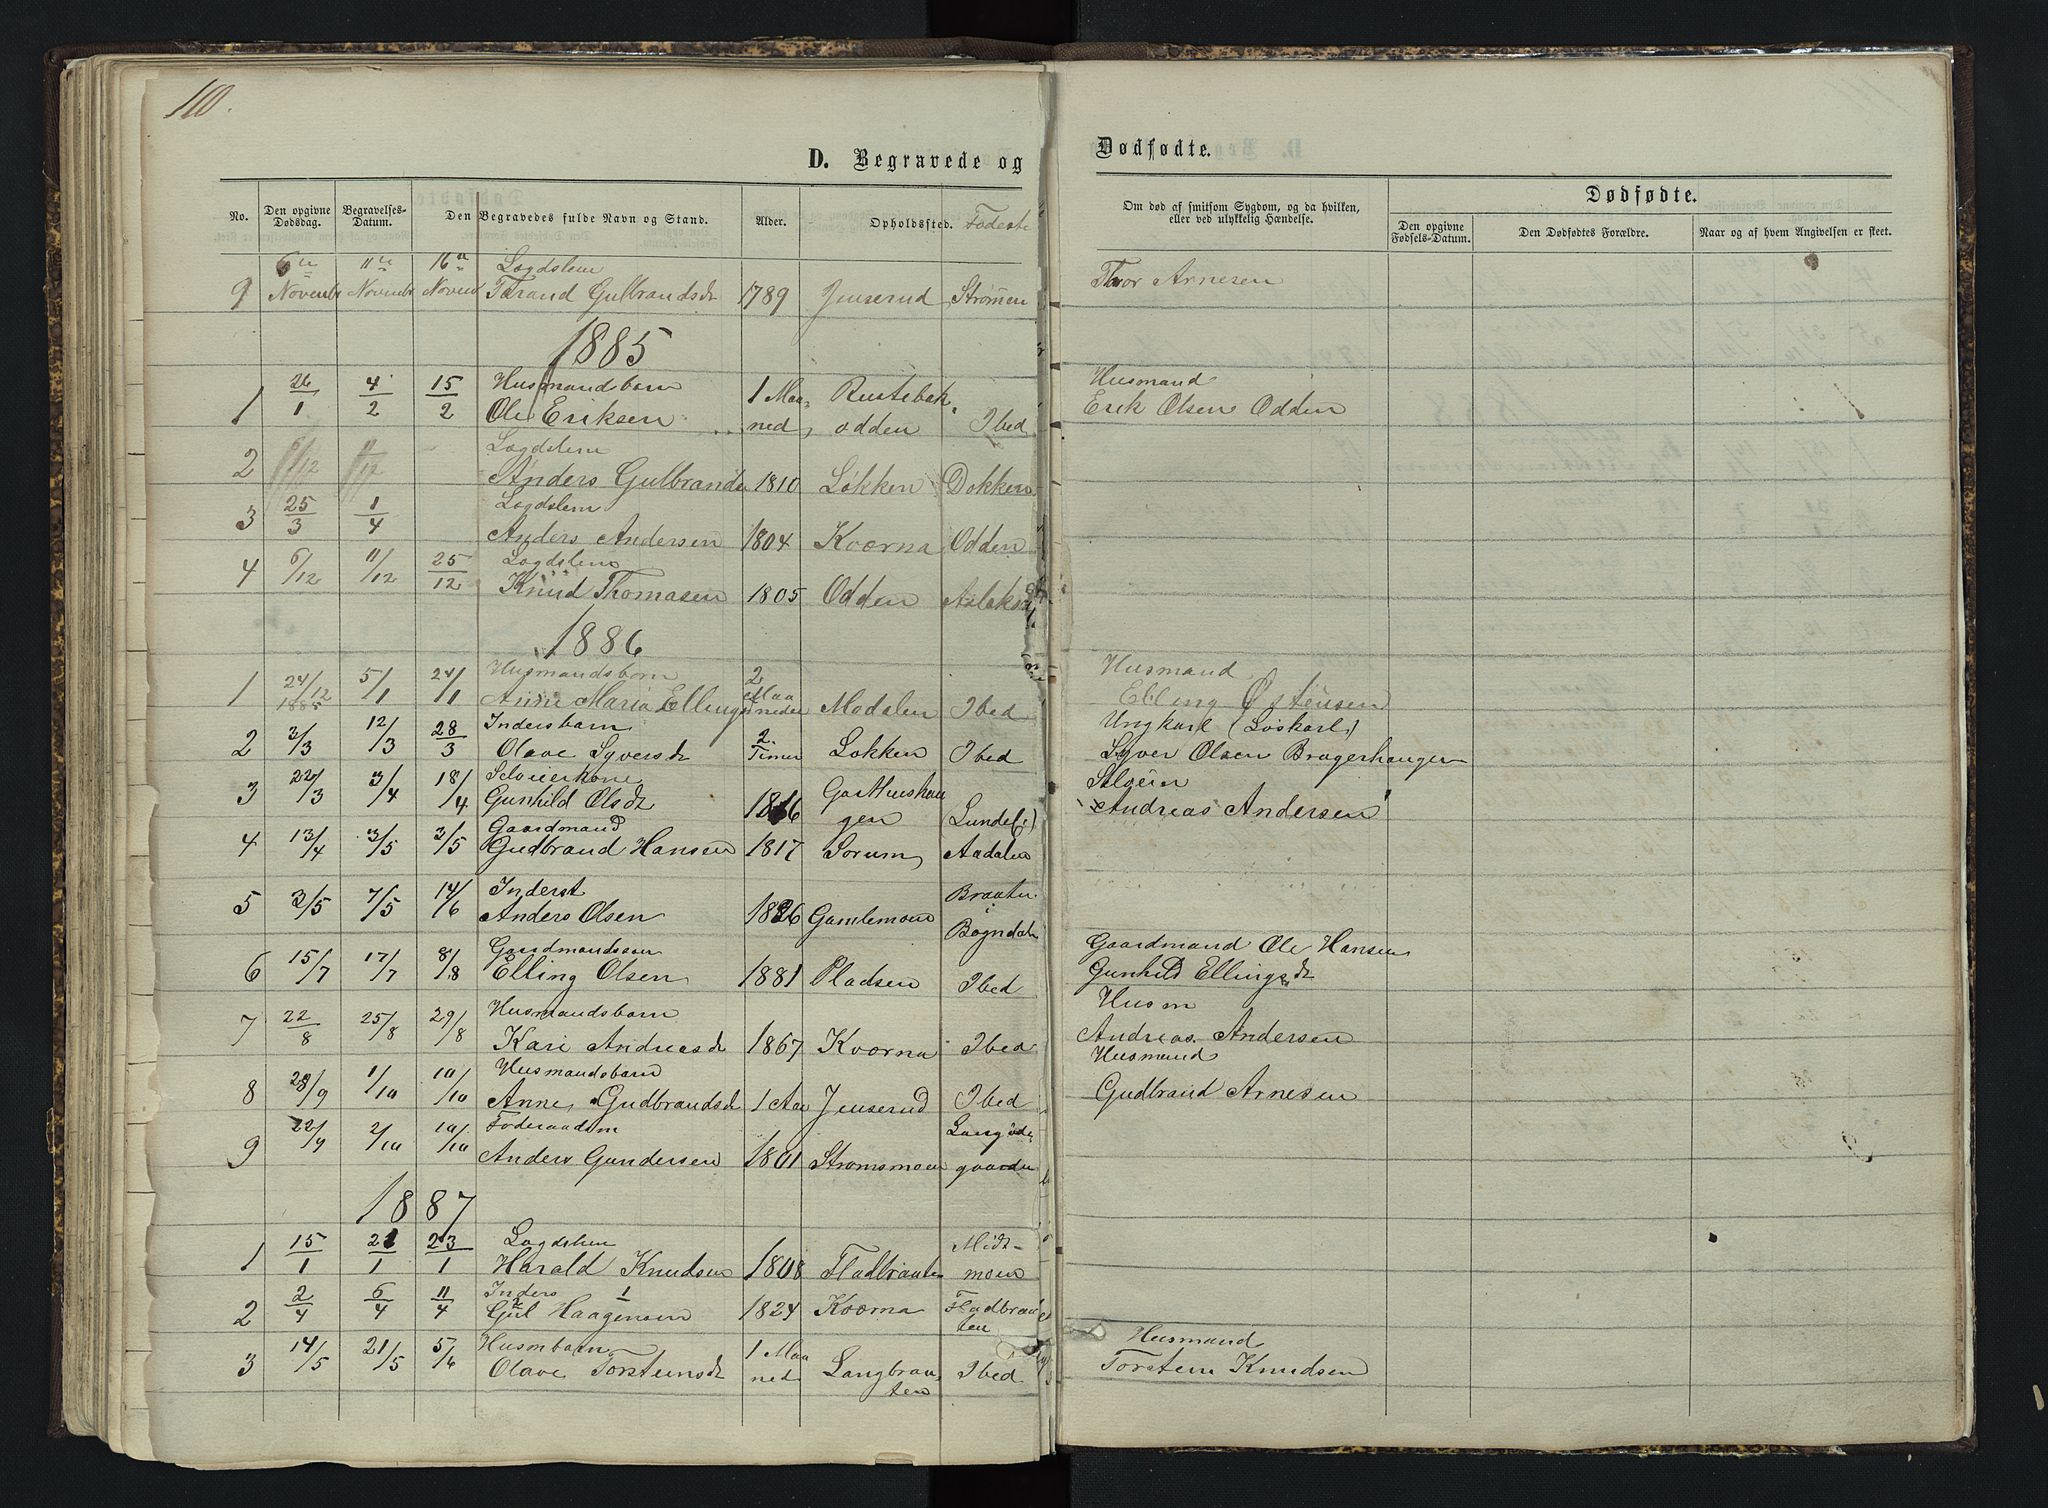 110.
D. Begravede og
Dødfødte.
No.
Den opgivne Dødsdag.
Begravelses-Datum.
Den Begravedes fulde Navn og Stand.
Alder.
Opholdssted.
Fødeste
Om død af smitsom Sygdom, og da hvilken, eller ved ulykkelig Hændelse.
Dødfødte.
Den opgivne Fødsels-Datum.
Den Dødfødtes Forældre.
Naar og af hvem Angivelsen er skeet.
6te 11te 16te Lægdslem
9 Novembr Novembr Novem Gulbrandsdt 1789 Jenserud Strømen Thor Arnesen
1885
26/1 4/2 15/2 Husmandsbarn 1 Maa- Rustebak- Husmand
1 Ole Eriksen ned, odden Ibed Erik Olsen Odden
Lægdslem
2 6/12 11/12 Anders Gulbrands 1810 Løkken Dokken
25/3 1/4 Lægdslem
3 Anders Andersen 1804 Kværna Odden
Lægdslem
4 6/12 11/12 25/12 Knud Thomasen 1805 Odden Aslaks
1886
24/12 5/1 24/1 Husmandsbarn 2 Husmand
1 1885 Anne Maria Ellings Maaneder Modalen Ibed Elling Østensen
Indersbarn Ungkarl (Løskarl)
2 3/3 12/3 28/3 Olave Syversdt 2 Timer Løkken Ibed Syver Olsen Bragerhaugen
3 22/3 3/4 18/4 Gunhild Olsdt 1816 gen Lunde Andreas Andersen
Gaardmand
4 13/4 3/5 3/5 Gudbrand Hansen 1817 Sørum Aadalen
Inderst Braaten
5 3/5 7/5 14/6 Anders Olsen 1826 Gamlemoen i Bægndalen
Gaardmandssøn Gaardmand Ole Hansen
6 15/7 17/7 8/8 Elling Olsen 1881 Pladsen Ibed Gunhild Ellingsdt
Husmandsbarn Husm
7 22/8 25/8 29/8 Kari Andreasdt 1867 Kværna Ibed Andreas Andersen
Husmandsbarn Husmand
8 28/9 1/10 10/10 Anne Gudbrandsdt 1 Aar Jenserud Ibed Gudbrand Arnesen
Føderaadsm
9 22/9 2/10 10/10 Anders Gundersen 1801 Strømsmoen gaarden
1887
Lægdslem Midt-
1 15/1 21/1 23/1 Harald Knudsen 1808 Fladbraaten moen
Inders 1
2 2/4 6/4 11/4 Gul Haagensen 1824 Kværna Fladbraaten
Husmbarn 1 Maa Husmand
3 14/5 21/5 5/6 Olave Torsteinsdt ned Langbraaten Ibed Torstein Knudsen